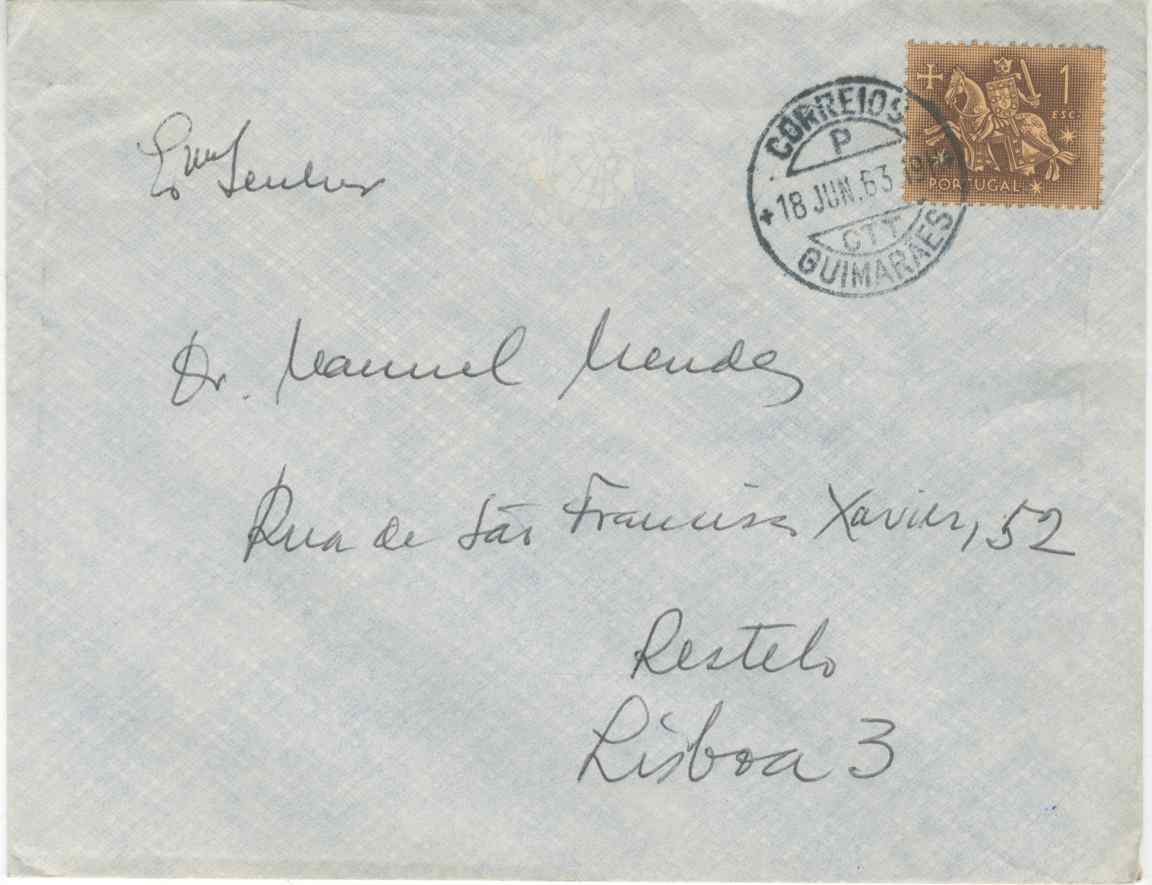 1
ESC.
PORTUGAL
CORREIOS
P
18 JUN. 63
CTT
GUIMARAES
Exmo Senhor
Dr. Manuel Mendes
Rua de São Francisco Xavier, 52
Restelo
Lisboa 3